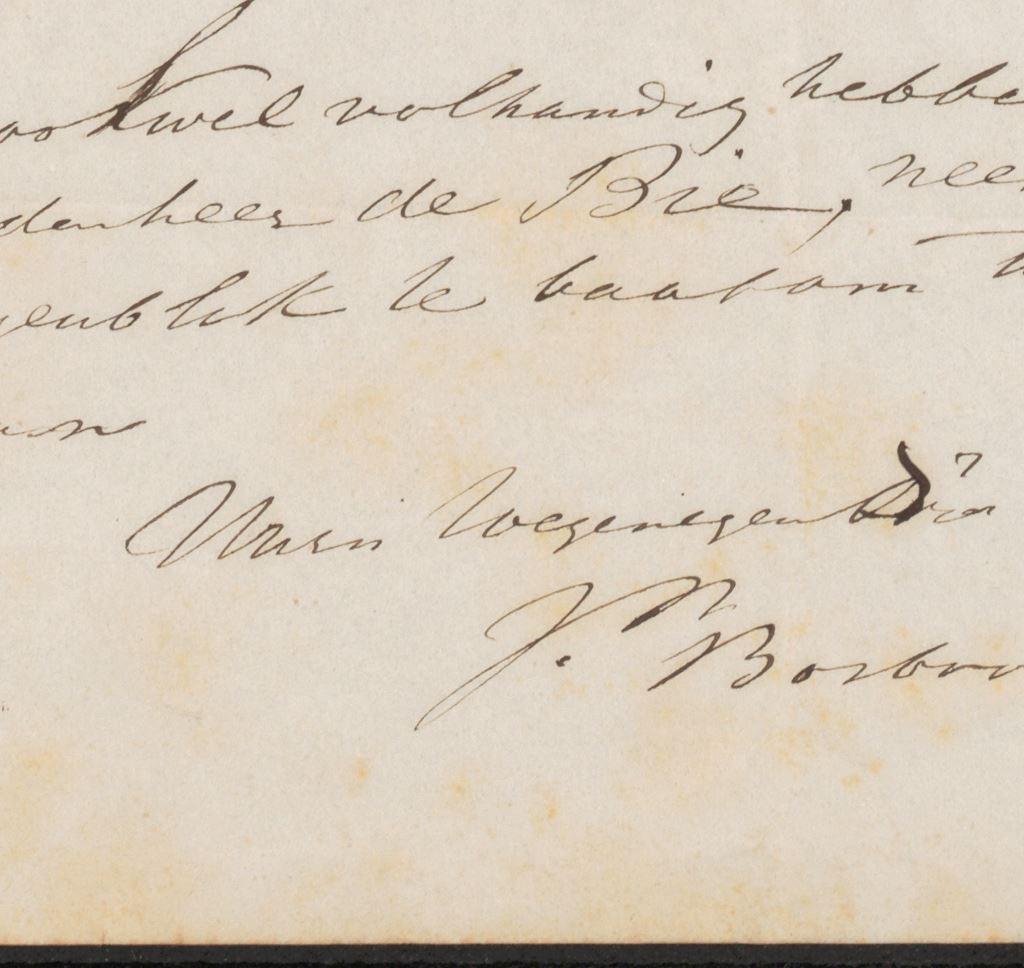 ook wel volhandig hebbe
denheer de Bie, neem
genblik te baat om
Uwen toegenegen
J. Bosbo